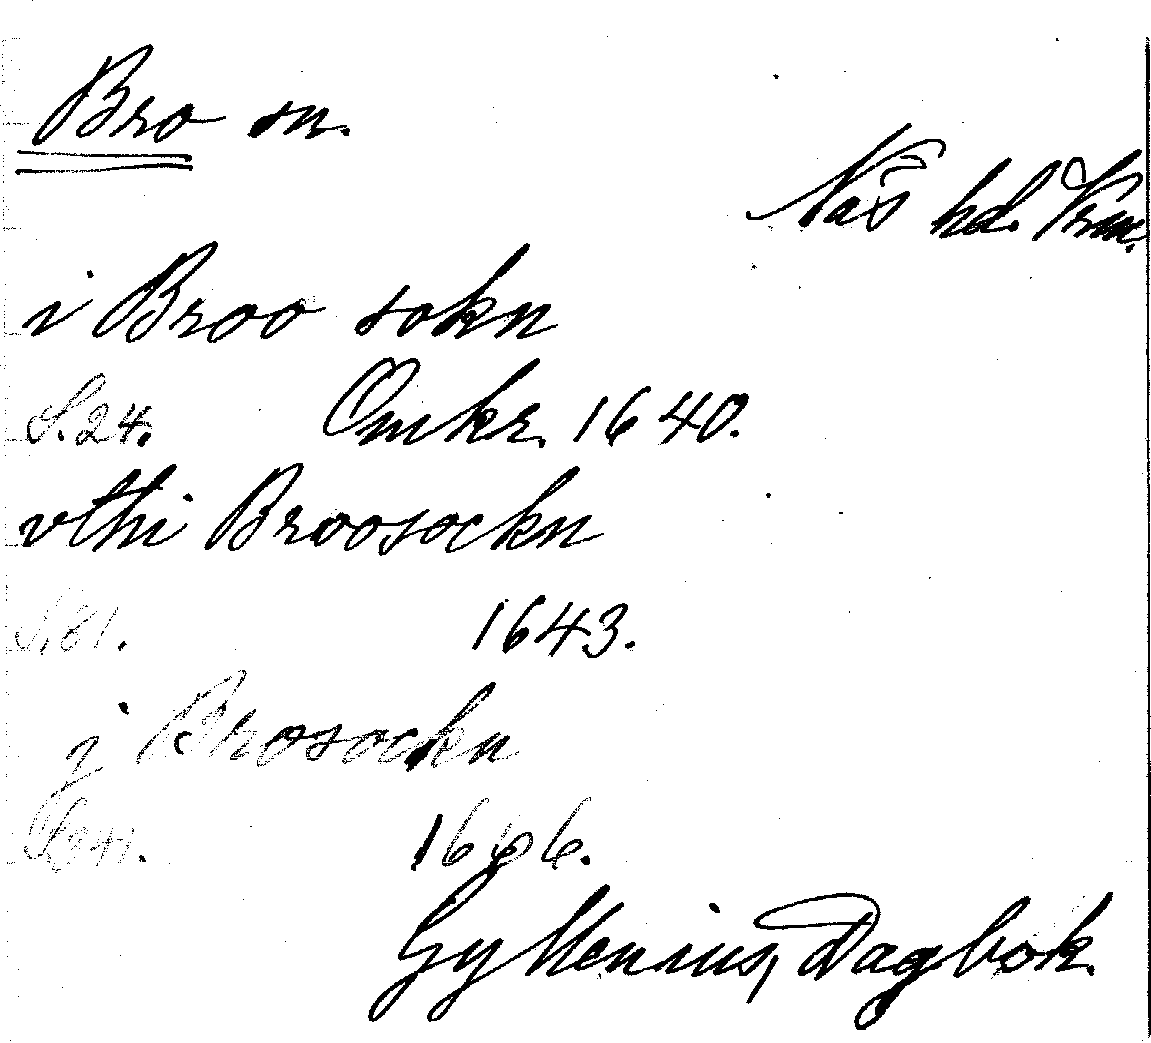 Bro sn.
Näs hd. Vrm.
i Broo sokn
S. 24. Omkr. 1640.
vthi Broosockn
S. 81. 1643.
j Brosockn
S. 341. 1666.
Gyllenius, Dagbok.